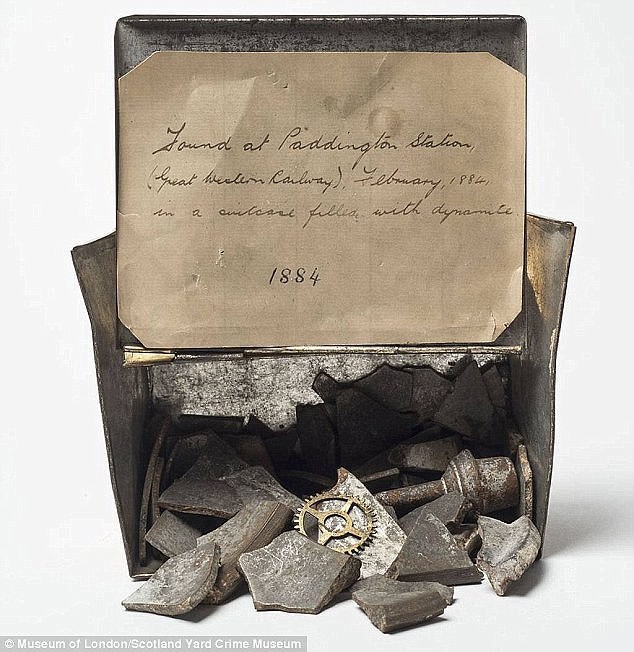 Found at Paddington Station,
(Great Western Railway), February, 1884,
in a suitcase filled with dynamite
1884
© Museum of London/Scotland Yard Crime Museum